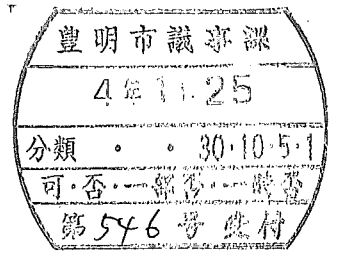 豊明市議事課
4年11.25
分類 ・ ・ 30・10・5・1
可・否・一部否・一時否
第546号収付